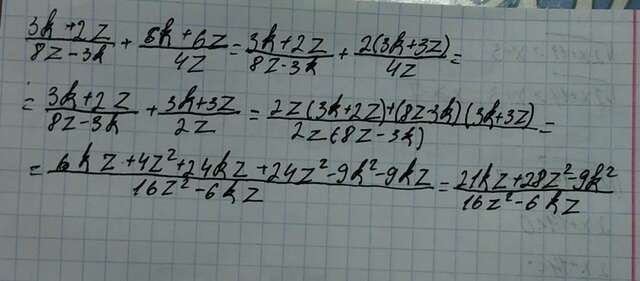 (3k+2z)/(8z-3k) + (6k+6z)/(4z) = (3k+2z)/(8z-3k) + (2(3k+3z))/(4z) =
= (3k+2z)/(8z-3k) + (3k+3z)/(2z) = (2z(3k+2z)+(8z-3k)(3k+3z))/(2z(8z-3k)) =
= (6kz+4z²+24kz+24z²-9k²-9kz)/(16z²-6kz) = (21kz+28z²-9k²)/(16z²-6kz)